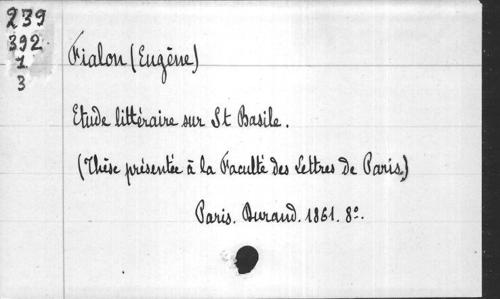 239
392
1
3
Fialon (Eugène)
Etude littéraire sur St Basile.
(Thèse présentée à la Faculté des Lettres de Paris.)
Paris. Durand. 1861. 8º.